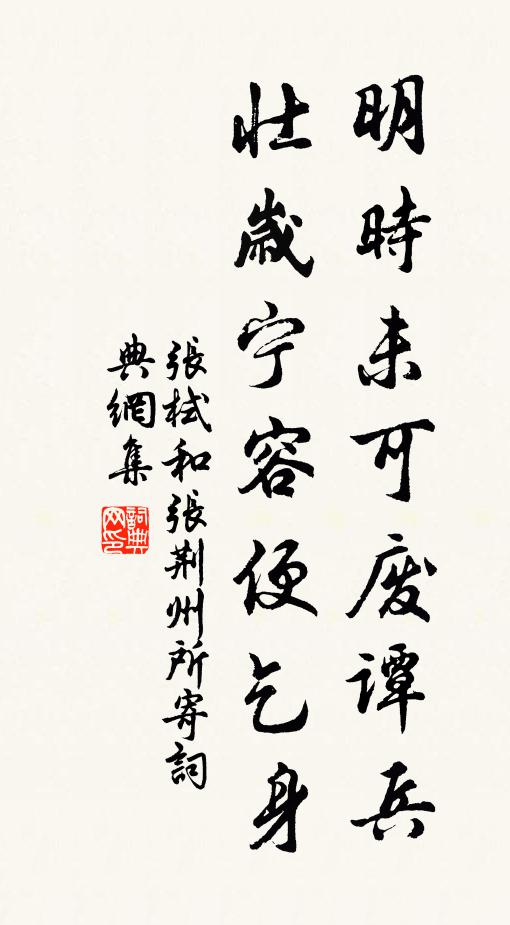 明時未可废谭兵
壮歲宁容便乞身
張栻和張荆州所寄詞
典網集
詞典网印